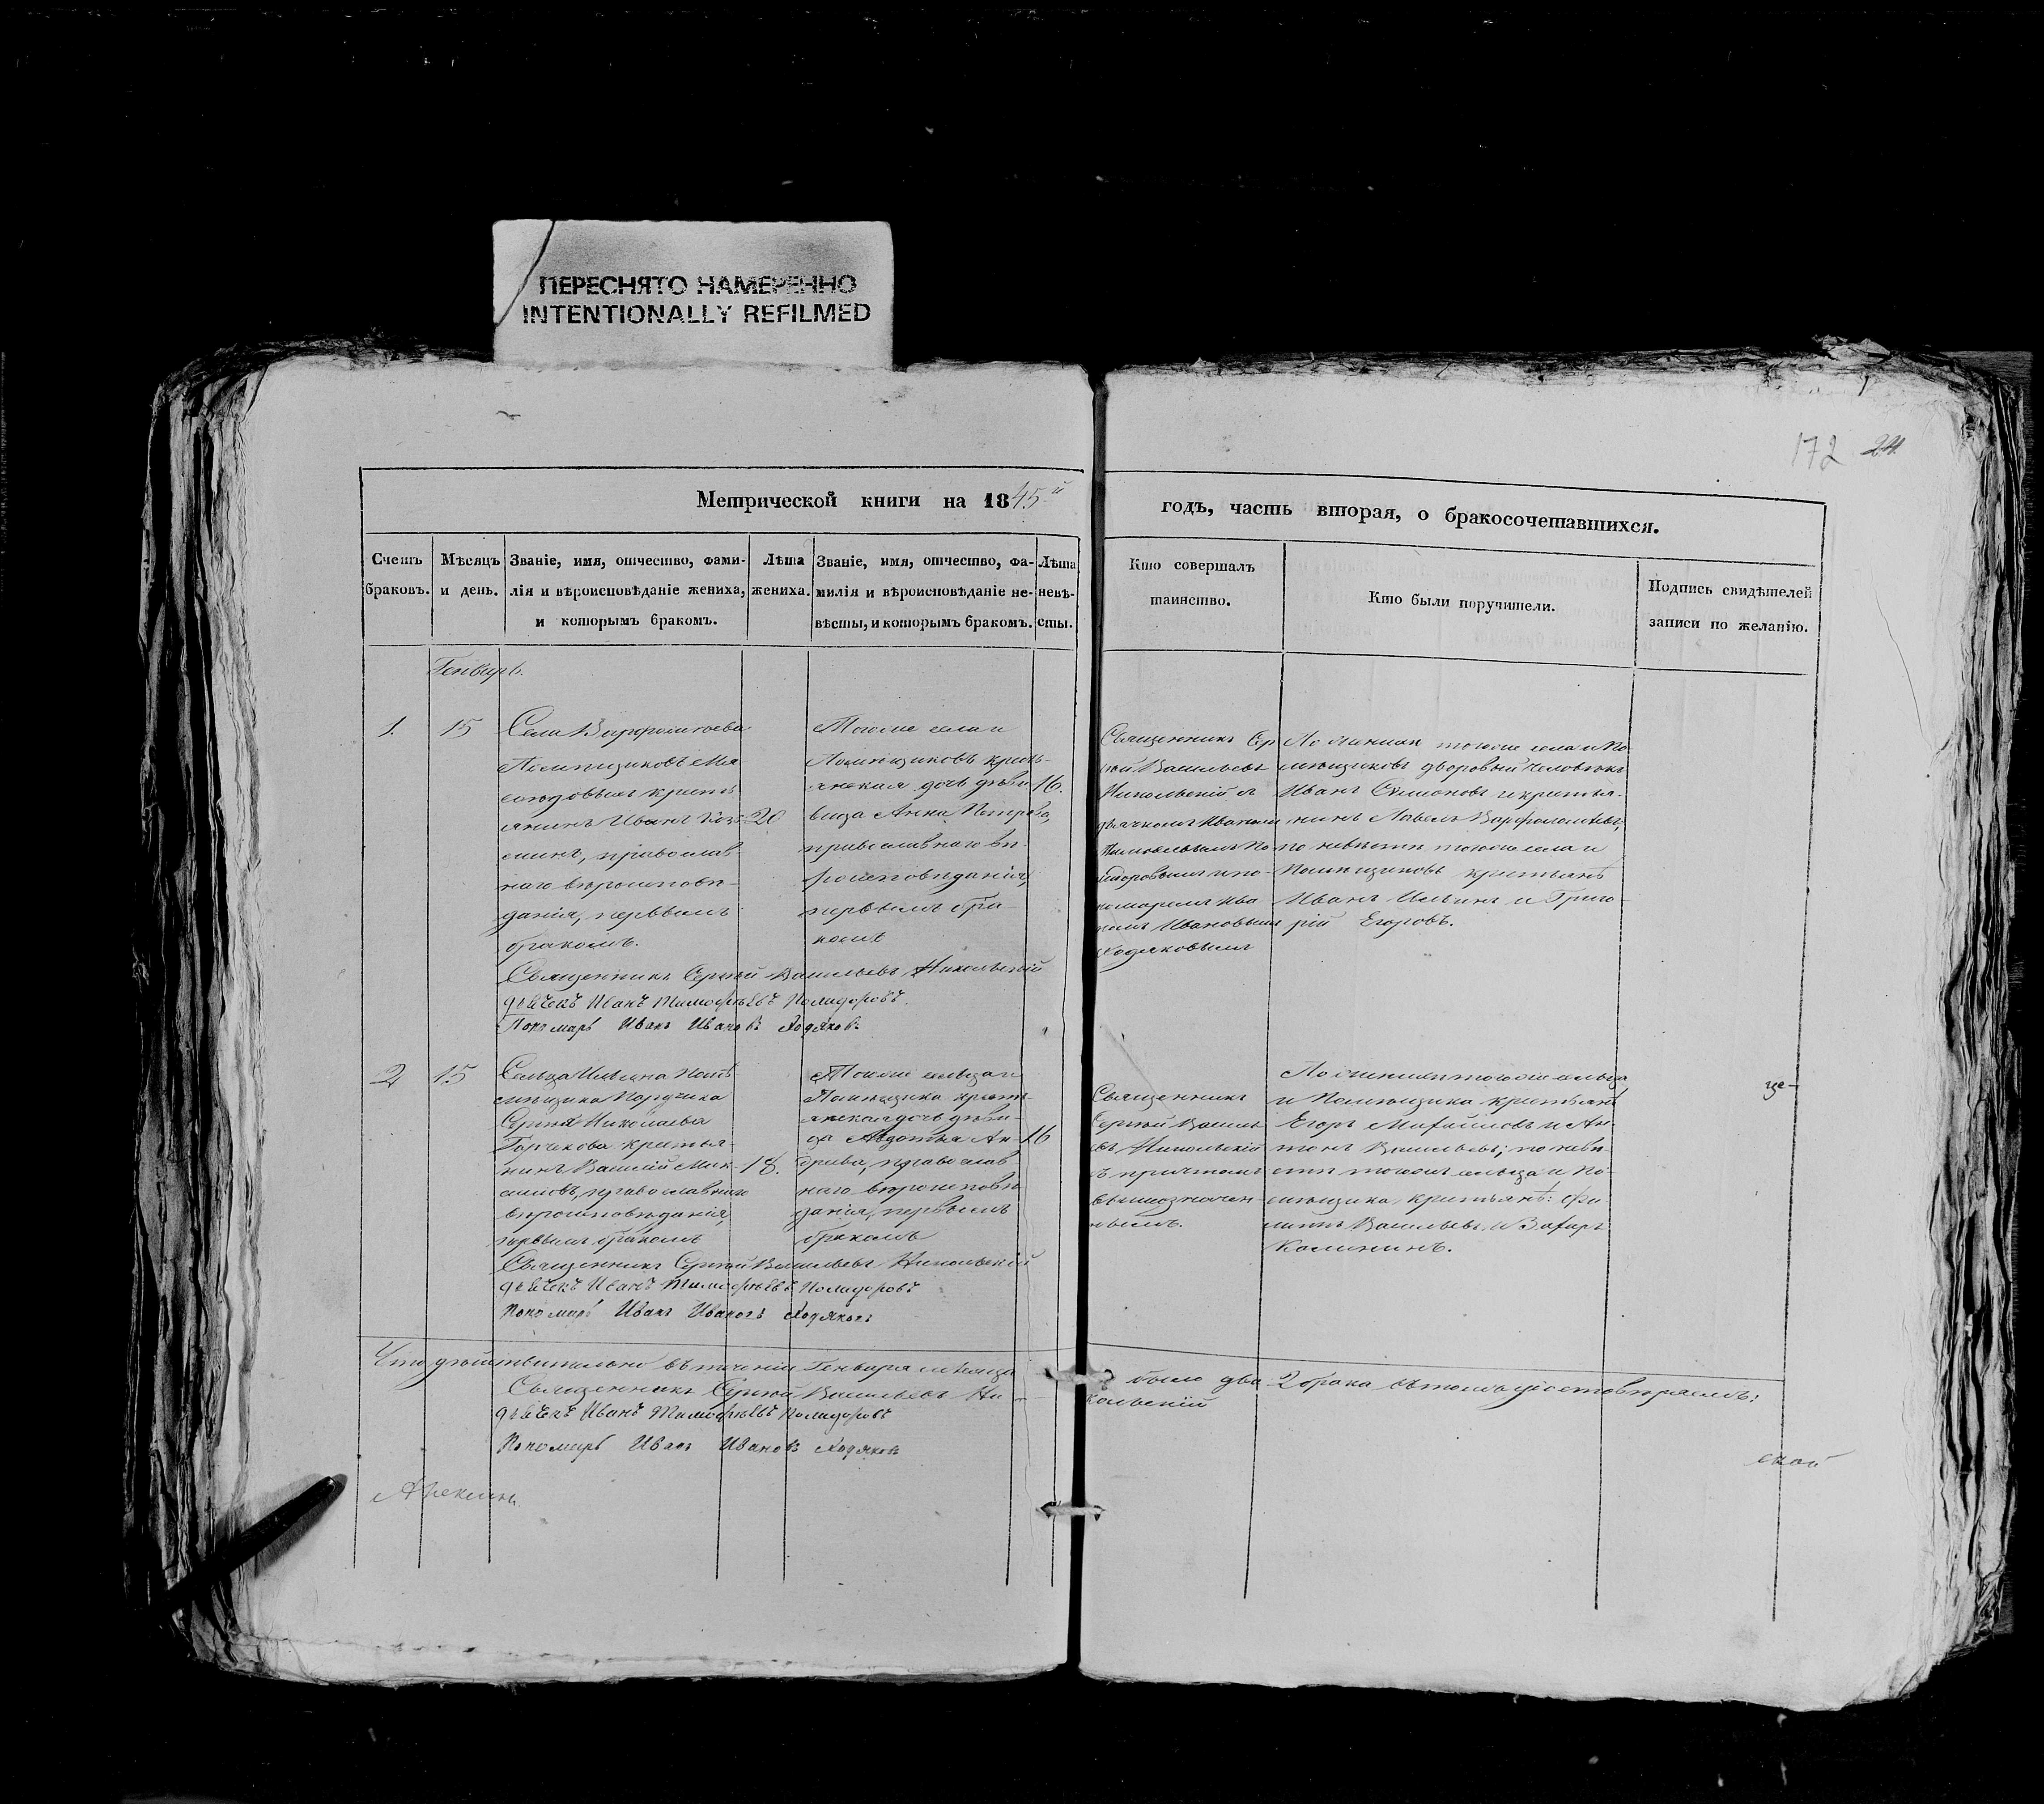 ПЕРЕСНЯТО НАМЕРЕННО
INTENTIONALLY REFILMED
172 24
Метрической книги на 1845й
годъ, часть вторая, о бракосочетавшихся.
Счетъ браковъ.
Мѣсяцъ и день.
Званіе, имя, отчество, фами-
лія и вѣроисповѣданіе жениха,
и которымъ бракомъ.
Лѣта
жениха.
Званіе, имя, отчество, фа-
милія и вѣроисповѣданіе не-
вѣсты, и которымъ бракомъ.
Лѣта
невѣ-
сты.
Кто совершалъ
таинство.
Кто были поручители.
Подпись свидѣтелей
записи по желанію.
Генварь.
1. 15
Села
Помѣщиковъ
крестъ
янинъ Иванъ
20
православ-
наго вѣроисповѣ-
данія, первымъ
бракомъ.
Тогоже села и
Помѣщиковъ кресть-
янская дочь дѣви-
16.
вица Анна Петрова,
православнаго вѣ-
роисповѣданія,
первымъ бра-
комъ
Священникъ Сер
гій Васильевъ
Никольскій
дьячкомъ Иваномъ
Тимофѣевымъ По-
лидоровымъ и по-
номаремъ Ива
номъ Ивановымъ
Ходяковымъ
По женихѣ тогоже села и По-
мѣщиковъ дворовый человѣкъ
Иванъ Симоновъ и крестья-
нинъ Павелъ Варфоломѣевъ,
по невѣстѣ тогоже села и
Помѣщиковъ крестьянѣ
Иванъ Ильинъ и Григо-
рій Егоровъ.
Священникъ Сергій Васильевъ Никольскій
дьячекъ Иванъ Тимофѣевъ Полидоровъ.
Пономарь Иванъ Ивановъ Ходяковъ
2 15
Сельца
Помѣ
мѣщика Порутчика
Сергія Николаева
Горчакова крестья-
нинъ Василій Мак-
18.
симовъ, православнаго
вѣроисповѣданія,
первымъ бракомъ
Тогоже сельца и
Помѣщика кресть-
янская дочь дѣви-
ца Авдотья Ан-
16
дреева, православ
наго вѣроисповѣ
данія, первымъ
бракомъ
Священникъ
Сергій Василь
евъ Никольскій
съ причтомъ
вышеозначен-
нымъ.
По женихѣ тогоже сельца
и Помѣщика крестьянѣ
Егоръ Михайловъ и Ан-
тонъ Васильевъ; по невѣ-
стѣ тогоже сельца и По-
мѣщика крестьянѣ: Фи-
липпъ Васильевъ и Захаръ
Калининъ.
Священникъ Сергій Васильевъ Никольскій
дьячекъ Иванъ Тимофѣевъ Полидоровъ
Пономарь Иванъ Ивановъ Ходяковъ
Что дѣйствительно въ теченіи Генваря мѣсяца было два 2 брака въ томъ удостовѣряемъ:
Священникъ Сергій Васильевъ Никольскій
дьячекъ Иванъ Тимофѣевъ Полидоровъ
Пономарь Иванъ Ивановъ Ходяковъ
Алексин
ской